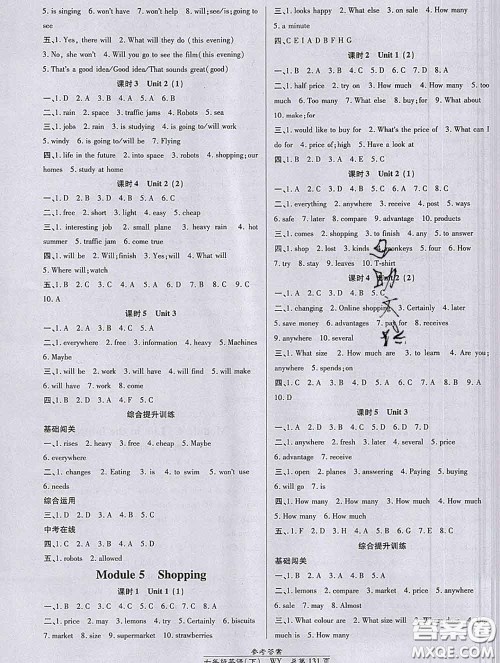 5. is singing 6. won't have 7. will have 8. is going to see
9. have 10. helping
五、1. Yes, there will 2. What will you do (this evening)
3. No, she won't 4. Will you go to see the film (this evening)
5. That's a good idea/Good idea/That sounds great(good)
课时 3 Unit 2 (1)
一、1. D 2. D 3. A 4. A 5. A 6. B
二、1. rain 2. space 3. traffic jams 4. Robots 5. sea
三、1. jobs 2. rain 3. is studying 4. is going to/will work
5. windy 6. is going to/will be 7. Flying
四、1. life in the future 2. into space 3. robots 4. shopping; our
homes 5. study at home
课时 4 Unit 2 (2)
一、1. C 2. A 3. B 4. D
二、1. free 2. short 3. light 4. easy 5. cheap
三、1. interesting job 2. small plane 3. heavy rain 4. hot
summer 5. traffic jam 6. come true
四、1. will be 2. Will; finish 3. Yes; will 4. What will; do
5. Where will; watch
五、1. C 2. B 3. A 4. A 5. B 6. D 7. C 8. B 9. C
10. A
课时 5 Unit 3
一、1. everywhere 2. free 3. robots 4. easy 5. Machines
6. Maybe
二、1. B 2. B 3. D 4. B 5. C
三、1. will be 2. will be 3. will have 4. will have 5. will have
6. will have 7. work 8. will go 9. will live 10. to make
四、1. C 2. C 3. B 4. D
综合提升训练
基础闯关
一、1. rises 2. heavy 3. cheap 4. everywhere 5. Maybe
6. everything
二、1. changes 2. Eating 3. is 4. to swim 5. won't be
6. needs
综合运用
三、1. D 2. B 3. A 4. B 5. C
中考在线
五、1. robots 2. allowed
Module 5 Shopping
课时 1 Unit 1 (1)
一、1. B 2. C 3. B 4. A 5. B 6. C 7. C 8. D
二、1. What size 2. try 3. Certainly 4. Wait 5. biscuits
6. market 7. size 8. strawberry 9. sausage 10. fresh
三、1. What else 2. on sale 3. too old 4. How many
5. a minute
四、C E I A D B F H G
课时 2 Unit 1 (2)
一、1. B 2. A 3. C 4. B 5. C
二、1. half price 2. try; on 3. How much 4. How many 5. too
much 6. Too many 7. What else 8. to buy 9. What about
10. make; for
三、1. would like to buy for 2. What else 3. What can I do for
4. price of; high 5. Have a look at
四、1. C 2. B 3. A 4. B
课时 3 Unit 2 (1)
一、1. C 2. B 3. A 4. B 5. A 6. D
二、1. Anyone 2. almost 3. product 4. post 5. ways
6. safe 7. later 8. compare 9. advantage 10. products
三、1. anywhere 2. choosing 3. to finish 4. any 5. to send
四、1. shop 2. lost 3. kinds 4. monkeys 5. four 6. How
7. try 8. stay 9. leaves 10. T-shirt
课时 4 Unit 2 (2)
一、1. D 2. C 3. A 4. B 5. A 6. B
二、1. changing 2. Online shopping 3. Certainly 4. later
5. save money 6. advantages 7. pay for 8. receives
9. anywhere 10. several
三、1. What size 2. How much are 3. to learn 4. Are; any
5. spends; on
四、1. C 2. A 3. B 4. D 5. B 6. C 7. A 8. B 9. C
10. D
课时 5 Unit 3
一、1. B 2. D 3. B 4. C 5. D 6. C
二、1. anywhere 2. fresh 3. later 4. several 5. anyone
6. receive
三、1. opens 2. planes 3. answering 4. Paying 5. buying
6. will go 7. is
四、1. How many 2. How much 3. How much 4. How much
5. How many 6. How many
五、1. C 2. B 3. C 4. C 5. A
综合提升训练
基础闯关
一、1. lemons 2. pound 3. market 4. compare 5. anywhere
6. size
二、1. B 2. D 3. A 4. C 5. D 6. B 7. A 8. C
三、1. What colour are 2. What size 3. would; like
参考答案
七年级英语(下) WY 总第 131 页
答案圈
MXQE.COM